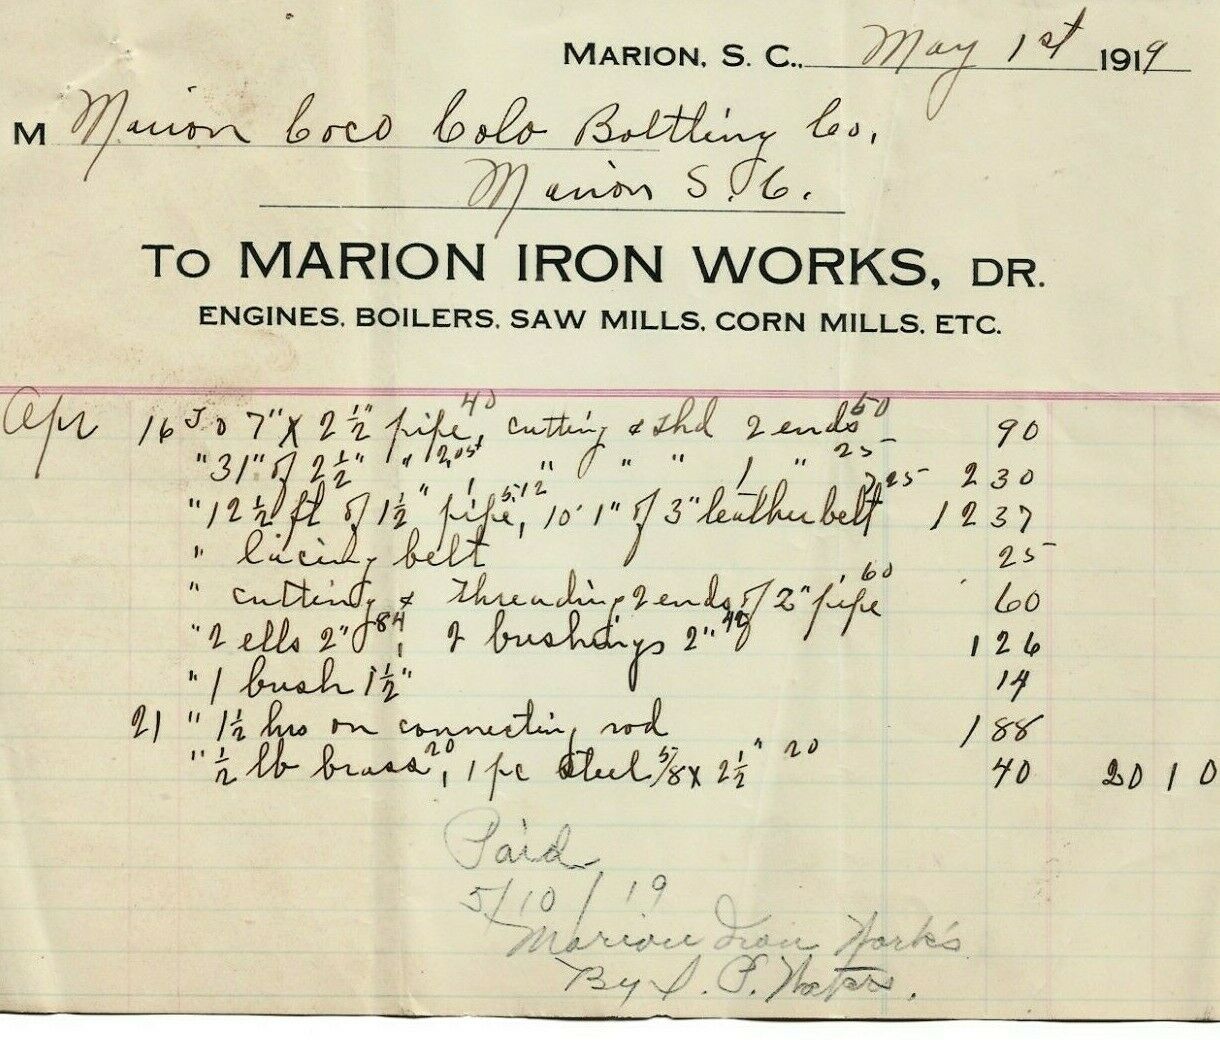 MARION, S. C., May 1st 1919
M Marion Coco Colo Bottling Co.
Marion S. C.
TO MARION IRON WORKS, DR.
ENGINES. BOILERS. SAW MILLS. CORN MILLS. ETC.
Apr 16 To 7" X 2 1/2" pipe, 40 cutting & thd 2 ends 50 90
" 31" of 2 1/2" " 2.05 " " " 1 " 25 2 30
" 12 1/2 ft of 1 1/2" pipe, 5.12 10' 1" of 3" leather belt 7 25 12 37
" lacing belt 25
" cutting & threading 2 ends of 2" pipe 60 60
" 2 ells 2" 84, 2 bushings 2" 42 1 26
" 1 bush 1 1/2" 14
21 " 1 1/2 hrs on connecting rod 1 88
" 1/2 lb brass 20, 1 pc steel 5/8 x 2 1/2" 20 40 20 10
Paid
5/10/19
Marion Iron Work's
By P.